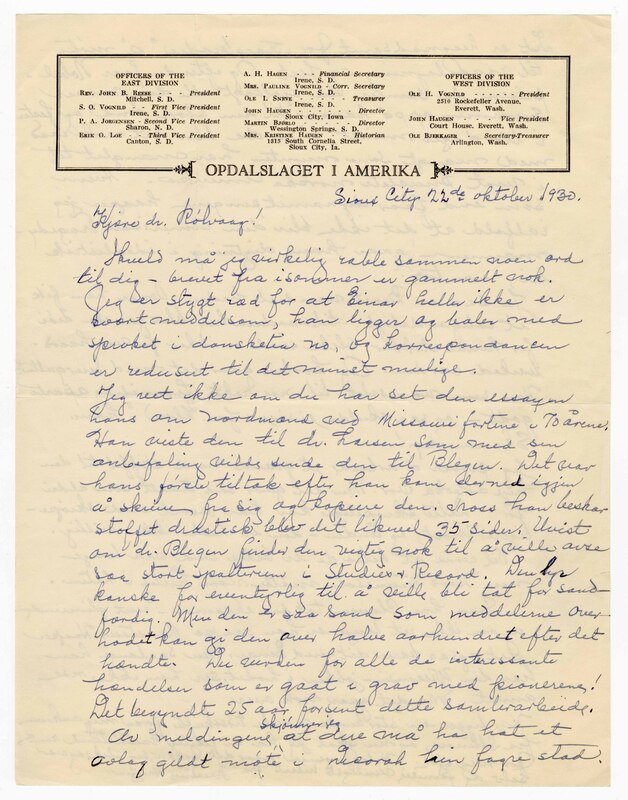 OFFICERS OF THE
EAST DIVISION
REV. JOHN B. REESE - - - President
Mitchell, S. D.
S. O. VOGNILD - First Vice President
Irene, S. D.
P. A. JORGENSEN - Second Vice President
Sharon, N. D.
ERIK O. LOE - Third Vice President
Canton, S. D.
A. H. HAGEN - - - Financial Secretary
Irene, S. D.
MRS. PAULINE VOGNILD - Corr. Secretary
Irene, S. D.
OLE I. SNEVE - - - - Treasurer
Irene, S. D.
JOHN HAUGEN - - - - - Director
Sioux City, Iowa
MARTIN BJORLO - - - - - Director
Wessington Springs, S. D.
MRS. KRISTINE HAUGEN - Historian
1313 South Cornelia Street,
Sioux City, Ia.
OFFICERS OF THE
WEST DIVISION
OLE H. VOGNILD - - - - - President
2510 Rockefeller Avenue,
Everett, Wash.
JOHN HAUGEN - - - Vice President
Court House, Everett, Wash.
OLE BJERKAGER - Secretary-Treasurer
Arlington, Wash.
OPDALSLAGET I AMERIKA
Sioux City 22de oktober 1930.
Kjære dr. Rölvaag!
Ikveld må jeg virkelig rable sammen noen ord
til dig - brevet fra isommer er gammelt nok.
Jeg er stygt ræd for at Einar heller ikke er
svært meddelsom, han ligger og baler med
sproket i no, og korrespondancen
er redusert til det minst mulige.
Jeg vet ikke om du har set den essayen
hans om nordmænd ved Missouri fortene i 70 årene.
Han viste den til dr. Larsen som med sin
anbefaling vilde sende den til Blegen. Det var
hans første tiltak efter han kom derned igjen
å skrive fra sig og kopiere den. Tross han beskar
stoffet drastisk blev det likevel 35 sider. Uvist
om dr. Blegen finder den vigtig nok til å ville avse
saa stort spalterum i Studies & Record. Den
kanske for eventyrlig til å ville bli tat for sand-
færdig. Men den er saa sand som meddelerne over-
hodet kan gi den over halve aarhundret efter det
hændte. Du verden for alle de interessante
hændelser som er gaat i grav med pionerene!
Det begyndte 25 aar forsent dette samlerarbeide.
Av meldingene skjönner jeg at dere må ha hat et
ovlag gildt möte i Decorah hin fagre stad.